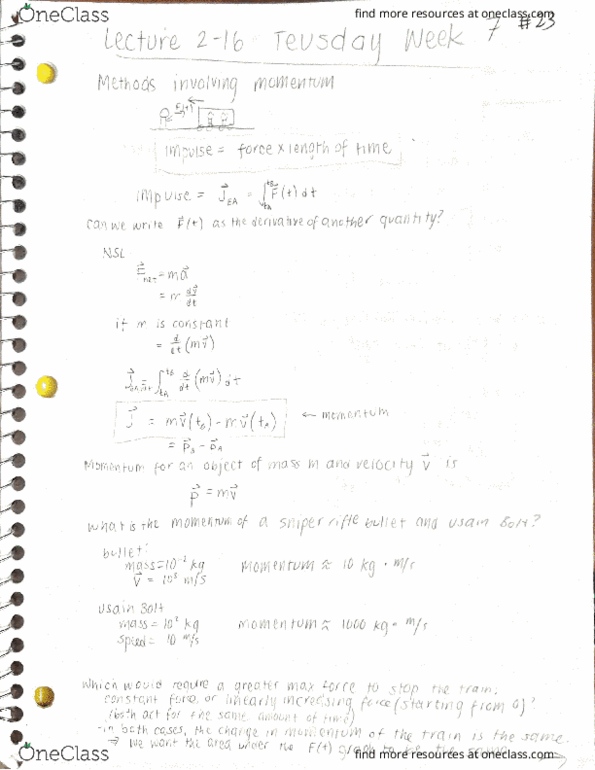 OneClass
find more resources at oneclass.com
#23
Lecture 2-16 Teusday Week 7
Methods involving momentum
F(t)
impulse = force x length of time
impulse = J⃗BA = ∫tA tB F⃗(t) dt
can we write F⃗(t) as the derivative of another quantity?
NSL
F⃗net = ma⃗
= m dv⃗/dt
if m is constant
= d/dt (mv⃗)
= ∫tA tB d/dt (mv⃗) dt
J⃗ = mv⃗(tB) - mv⃗(tA) ← momentum
= p⃗B - p⃗A
Momentum for an object of mass m and velocity v⃗ is
p⃗ = mv⃗
what is the momentum of a sniper rifle bullet and usain Bolt?
bullet:
mass = 10⁻² kg
v⃗ = 10³ m/s
Momentum ≈ 10 kg · m/s
usain Bolt
mass = 10² kg
speed = 10 m/s
Momentum ≈ 1000 kg · m/s
which would require a greater max force to stop the train:
constant force or linearly increasing force (starting from 0)?
(both act for the same amount of time)
-in both cases, the change in momentum of the train is the same.
→ we want the area under the F(t) graph to be the same
OneClass
find more resources at oneclass.com